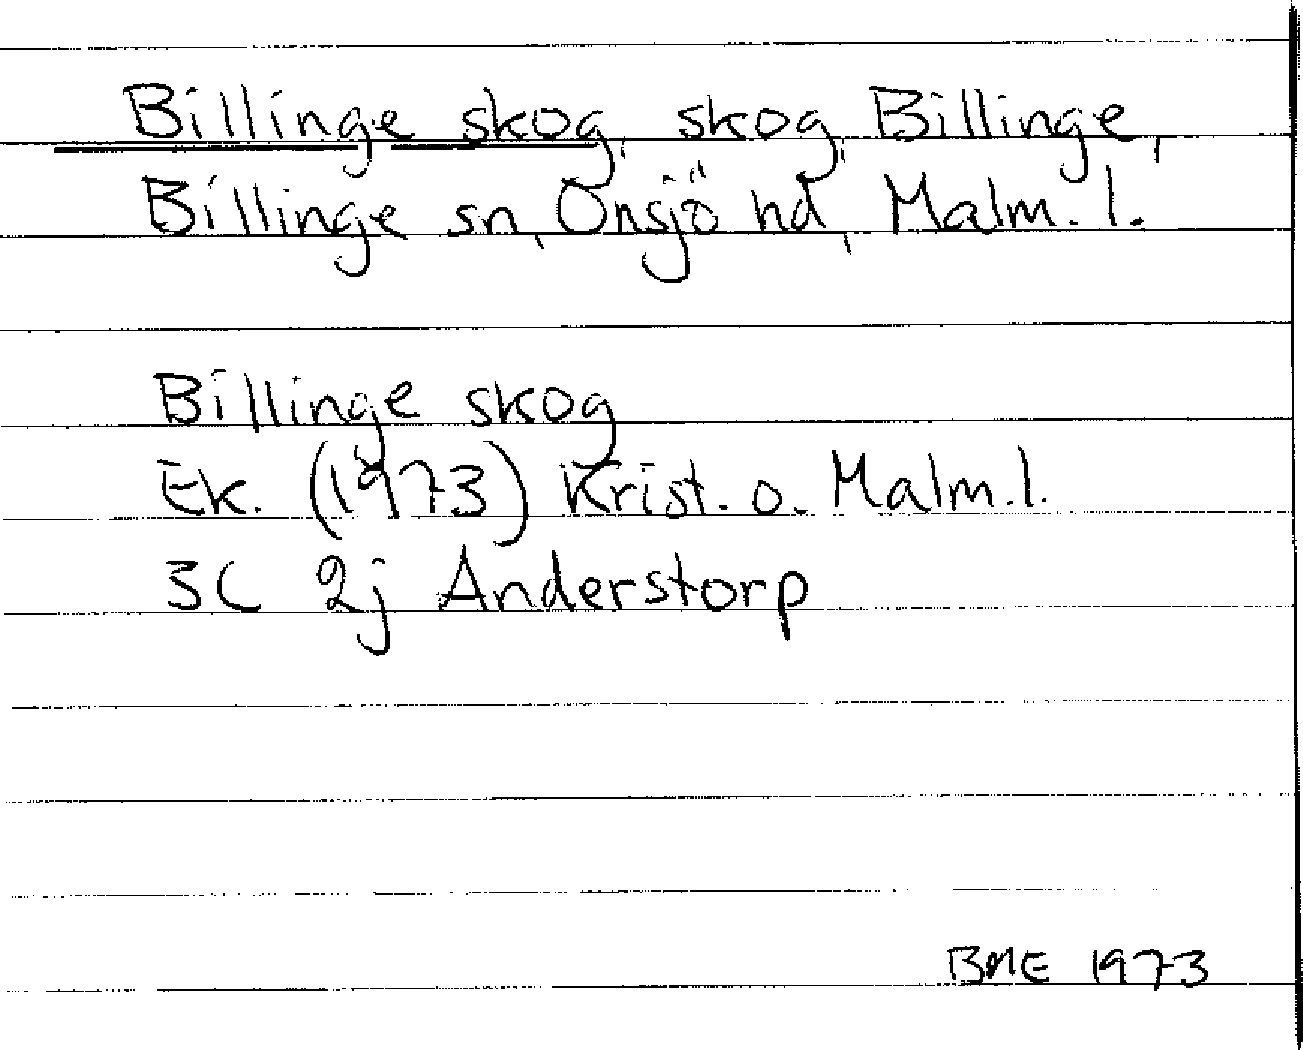 Billinge skog, skog, Billinge,
Billinge sn, Onsjö hd, Malm. l.
Billinge skog
Ek. (1973) Krist. o. Malm. l.
3C 2j Anderstorp
BME 1973